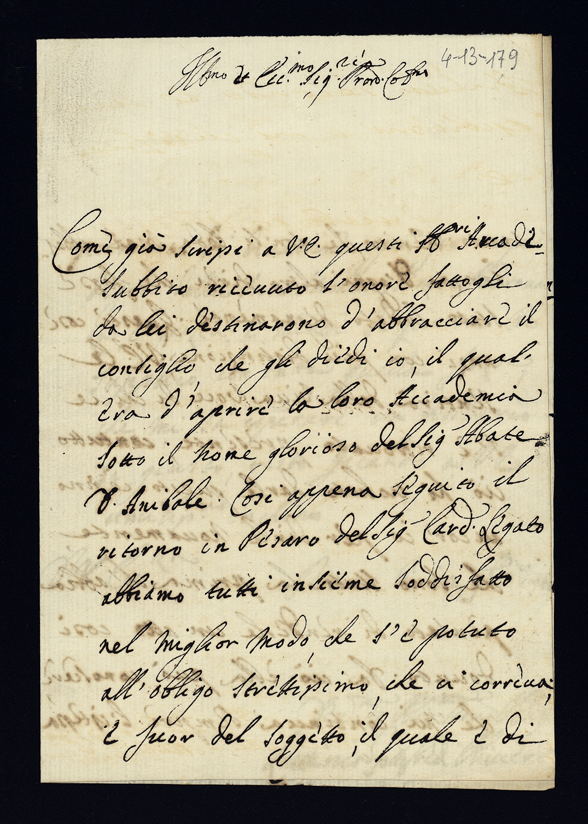 4-13-179
Ill.mo et Ecc.mo Sig.re P.ron Col.mo
Come già scrissi a V.E. questi SS.ri Arcadi
subbito ricevuto l'onore fattogli
da lei destinarono d'abbracciare il
consiglio che gli diedi io, il qual'
era d'aprire la loro Accademia
sotto il nome glorioso del Sig.r Abate
D. Anibale. Così appena seguito il
ritorno in Pesaro del Sig.r Card. Legato
abbiamo tutti insieme soddisfatto
nel miglior modo, che s'è potuto
all'obligo strettissimo, che ci correva;
e fuor del soggetto, il quale è di